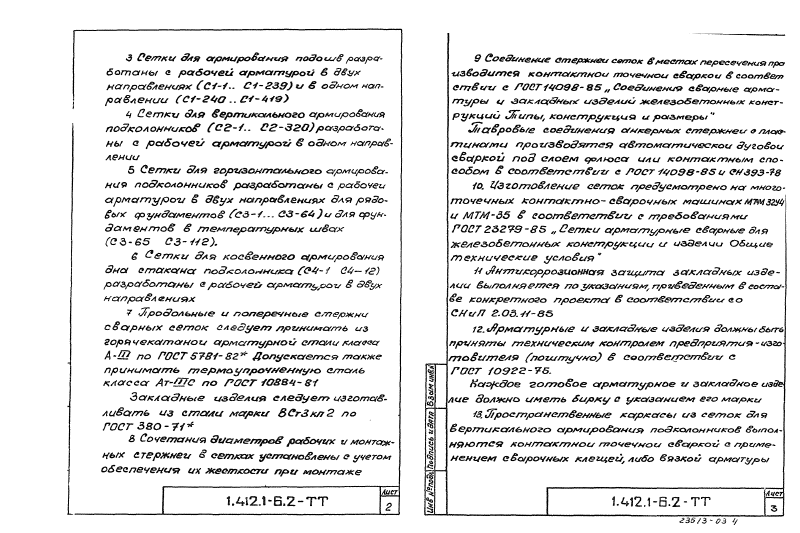 3 Сетки для армирования подошв разра-
ботаны с рабочей арматурой в двух
направлениях (С1-1.. С1-239) и в одном нап-
равлении (С1-240.. С1-419)
4 Сетки для вертикального армирования
подколонников (С2-1.. С2-320) разработа-
ны с рабочей арматурой в одном направ-
лении
5 Сетки для горизонтального армирова-
ния подколонников разработаны с рабочеи
арматурои в двух направлениях для рядо-
вых фундаментов (С3-1... С3-64) и для фун-
даментов в температурных швах
(С3-65 С3-112).
6 Сетки для косвенного армирования
дна стакана подколонника (С4-1 С4-12)
разработаны с рабочей арматурои в двух
направлениях
7 Продольные и поперечные стержни
сварных сеток следует принимать из
горячекатанои арматурной стали класса
А-III по ГОСТ 5781-82* Допускается также
принимать термоупрочненную сталь
класса Ат-IIIС по ГОСТ 10884-81
Закладные изделия следует изготав-
ливать из стали марки ВСт3кп2 по
ГОСТ 380-71*
8 Сочетания диаметров рабочих и монтаж-
ных стержнеи в сетках установлены с учетом
обеспечения их жесткости при монтаже
1.412.1-6.2-ТТ
Лист
2
9 Соединение стержнеи сеток в местах пересечения про
изводится контактнои точечнои сваркой в соответ
ствии с ГОСТ 14098-85 „Соединения сварные арма-
туры и закладных изделий железобетонных конст-
рукций Типы, конструкция и размеры"
Тавровые соединения анкерных стержнеи с плас-
тинами производятся автоматическои дуговои
сваркой под слоем флюса или контактным спо-
собом в соответствии с ГОСТ 14098-85 и СН 393-78
10. Изготовление сеток предусмотрено на много-
точечных контактно-сварочных машинах МТМ 32У4
и МТМ-35 в соответствии с требованиями
ГОСТ 23279-85 „Сетки арматурные сварные для
железобетонных конструкции и изделии Общие
технические условия"
11 Антикоррозионная защита закладных изде-
лии выполняется по указаниям, приведенным в соста-
ве конкретного проекта в соответствии со
СНиП 2.03.11-85
12. Арматурные и закладные изделия должны быть
приняты техническим контролем предприятия-изго-
товителя (поштучно) в соответствии с
ГОСТ 10922-75.
Каждое готовое арматурное и закладное изде
лие должно иметь бирку с указанием его марки
13. Пространственные каркасы из сеток для
вертикального армирования подколонников выпол-
няются контактнои точечнои сваркой с приме-
нением сварочных клещей, либо вязкой арматуры
Инв № подл Подпись и дата Взам инв №
1.412.1-6.2-ТТ
Лист
3
23613-03 4